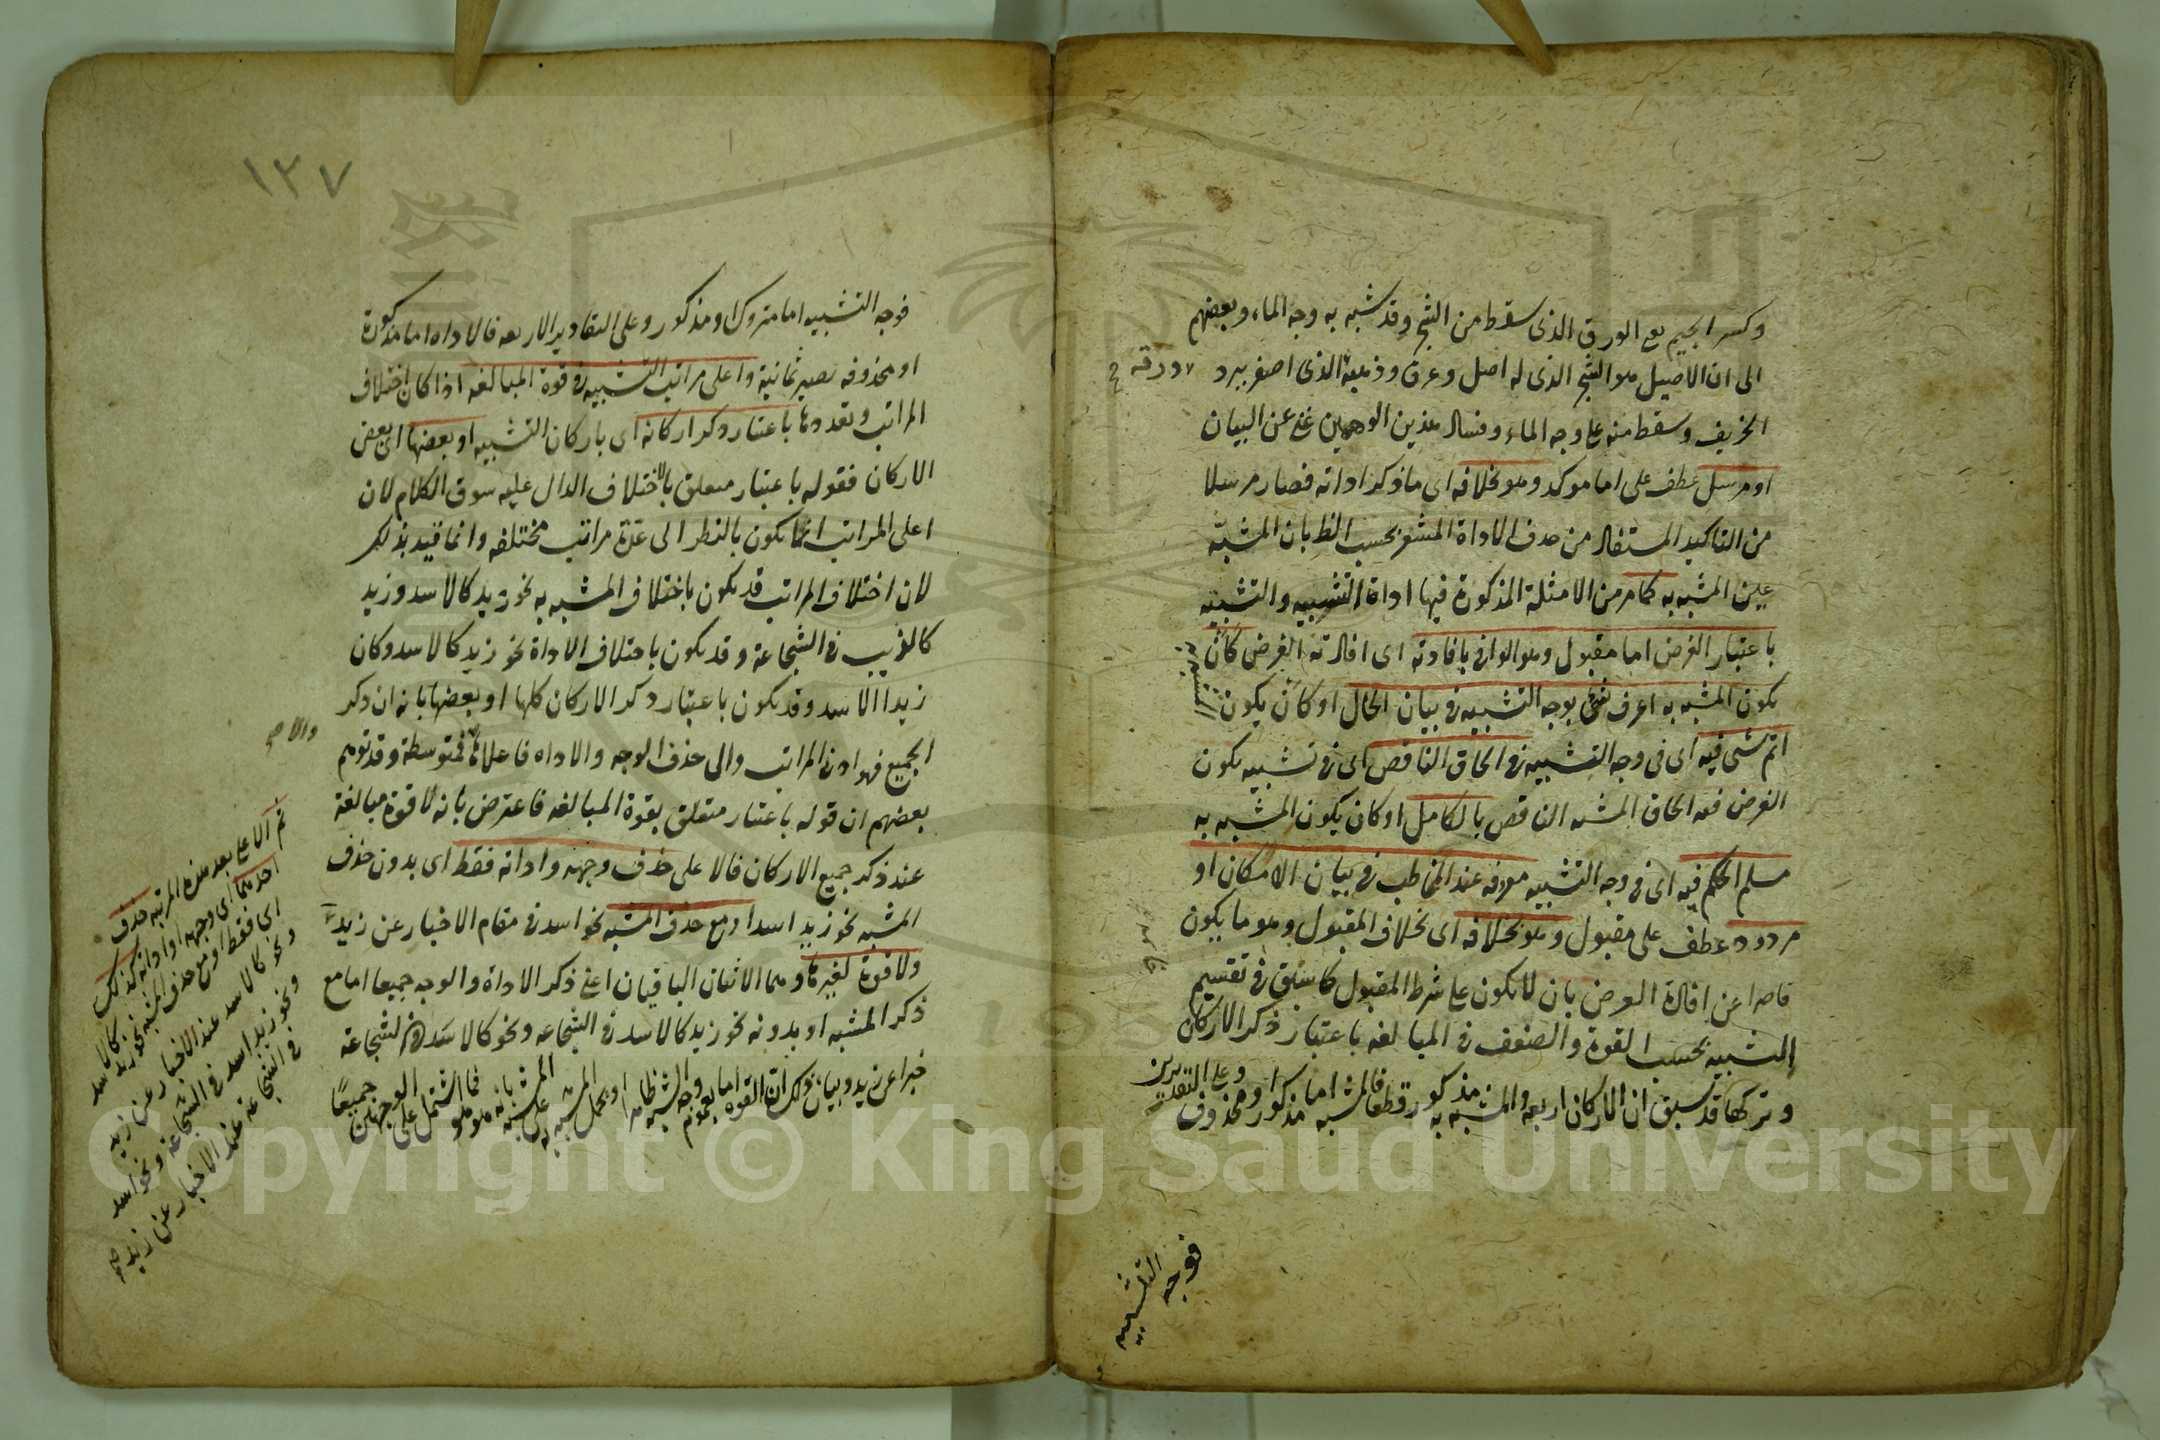 وكسر الجيم مع الورق الذى سقط من الشجر وقد شبه به وجه الماء وبعضهم
الى ان الاصيل هو الشجر الذى له اصل وعرق وذهبه الذى اصفر ببرد
ورقه
الخريف وسقط منه على وجه الماء وفساد هذين الوجهين غنى عن البيان
او مرسل عطف على اما موكد وهو بخلافه اى ما ذكر اداته فصار مرسلا
من التاكيد المستفاد من حذف الاداة المشعر بحسب الظ بان المشبه
عين المشبه به كما مر من الامثلة المذكورة فيها اداة التشبيه والتشبيه
باعتبار الغرض اما مقبول وهو الوافى بافادته اى افادته الغرض كان
يكون المشبه به اعرف شى بوجه التشبيه فى بيان الحال او كان يكون
اتم شى فيه اى فى وجه التشبيه فى الحاق الناقص اى فى تشبيه يكون
الغرض فيه الحاق المشبه الناقص بالكامل او كان يكون المشبه به
مسلم الحكم فيه اى فى وجه التشبيه معروفه عند المخاطب فى بيان الامكان او
مردود عطف على مقبول وهو بخلافه اى بخلاف المقبول وهو ما يكون
قاصرا عن افادة الغرض بان لا يكون على شرط المقبول كما سبق فى تقسيم
التشبيه بحسب القوة والضعف فى المبالغه باعتبار ذكر الاركان
وتركها قد سبق ان الاركان اربعه والمشبه به مذكور قطعا فالمشبه اما مذكور او محذوف وعلى التقديرين
فوجه التشبيه
١٢٧
فوجه التشبيه اما متروك او مذكور وعلى التقادير الاربعه فالاداه اما مذكورة
او محذوفه تصير ثمانية واعلى مراتب التشبيه فى قوة المبالغه اذا كان اختلاف
المراتب وتعددها باعتبار ذكر اركانه اى باركان التشبيه او بعضها اى بعض
الاركان فقوله باعتبار متعلق بالاختلاف الدال عليه سوق الكلام لان
اعلى المراتب انما يكون بالنظر الى عدة مراتب مختلفه وانما قيد بذلك
لان اختلاف المراتب قد يكون باختلاف المشبه به نحو زيد كالاسد وزيد
كالذيب فى الشجاعة وقد يكون باختلاف الاداة نحو زيد كالاسد وكان
زيدا الاسد وقد يكون باعتبار ذكر الاركان كلها او بعضها بانه ان ذكر
الجميع فهو ادنى المراتب والى حذف الوجه والاداه فاعلاها فمتوسطة وقد توهم
والا
بعضهم ان قوله باعتبار متعلق بقوة المبالغه فاعترض بانه لا قوة مبالغة
عند ذكر جميع الاركان فالاعلى حذف وجهه واداته فقط اى بدون حذف
المشبه نحو زيد اسد او مع حذف المشبه نحو اسد فى مقام الاخبار عن زيد
ولا قوة لغيرهما وهما الاثنان الباقيان اعنى ذكر الاداة والوجه جميعا اما مع
ذكر المشبه او بدونه نحو زيد كالاسد فى الشجاعه ونحو كالاسد فى الشجاعة
خبرا عن زيد وبيان ذلك ان القوة اما بعموم وجه الشبه ظاهرا او بحمل المشبه به على المشبه بانه هو هو فما اشتمل على الوجهين جميعا
ثم الاعلى بعد هذه المرتبه حذف
احدهما اى وجهه او اداته كذلك
اى فقط او مع حذف المشبه نحو زيد كالاسد
ونحو كالاسد عند الاخبار عن زيد
ونحو زيد اسد فى الشجاعة ونحو اسد
فى الشجاعة عند الاخبار عن زيد صح
Copyright © King Saud University